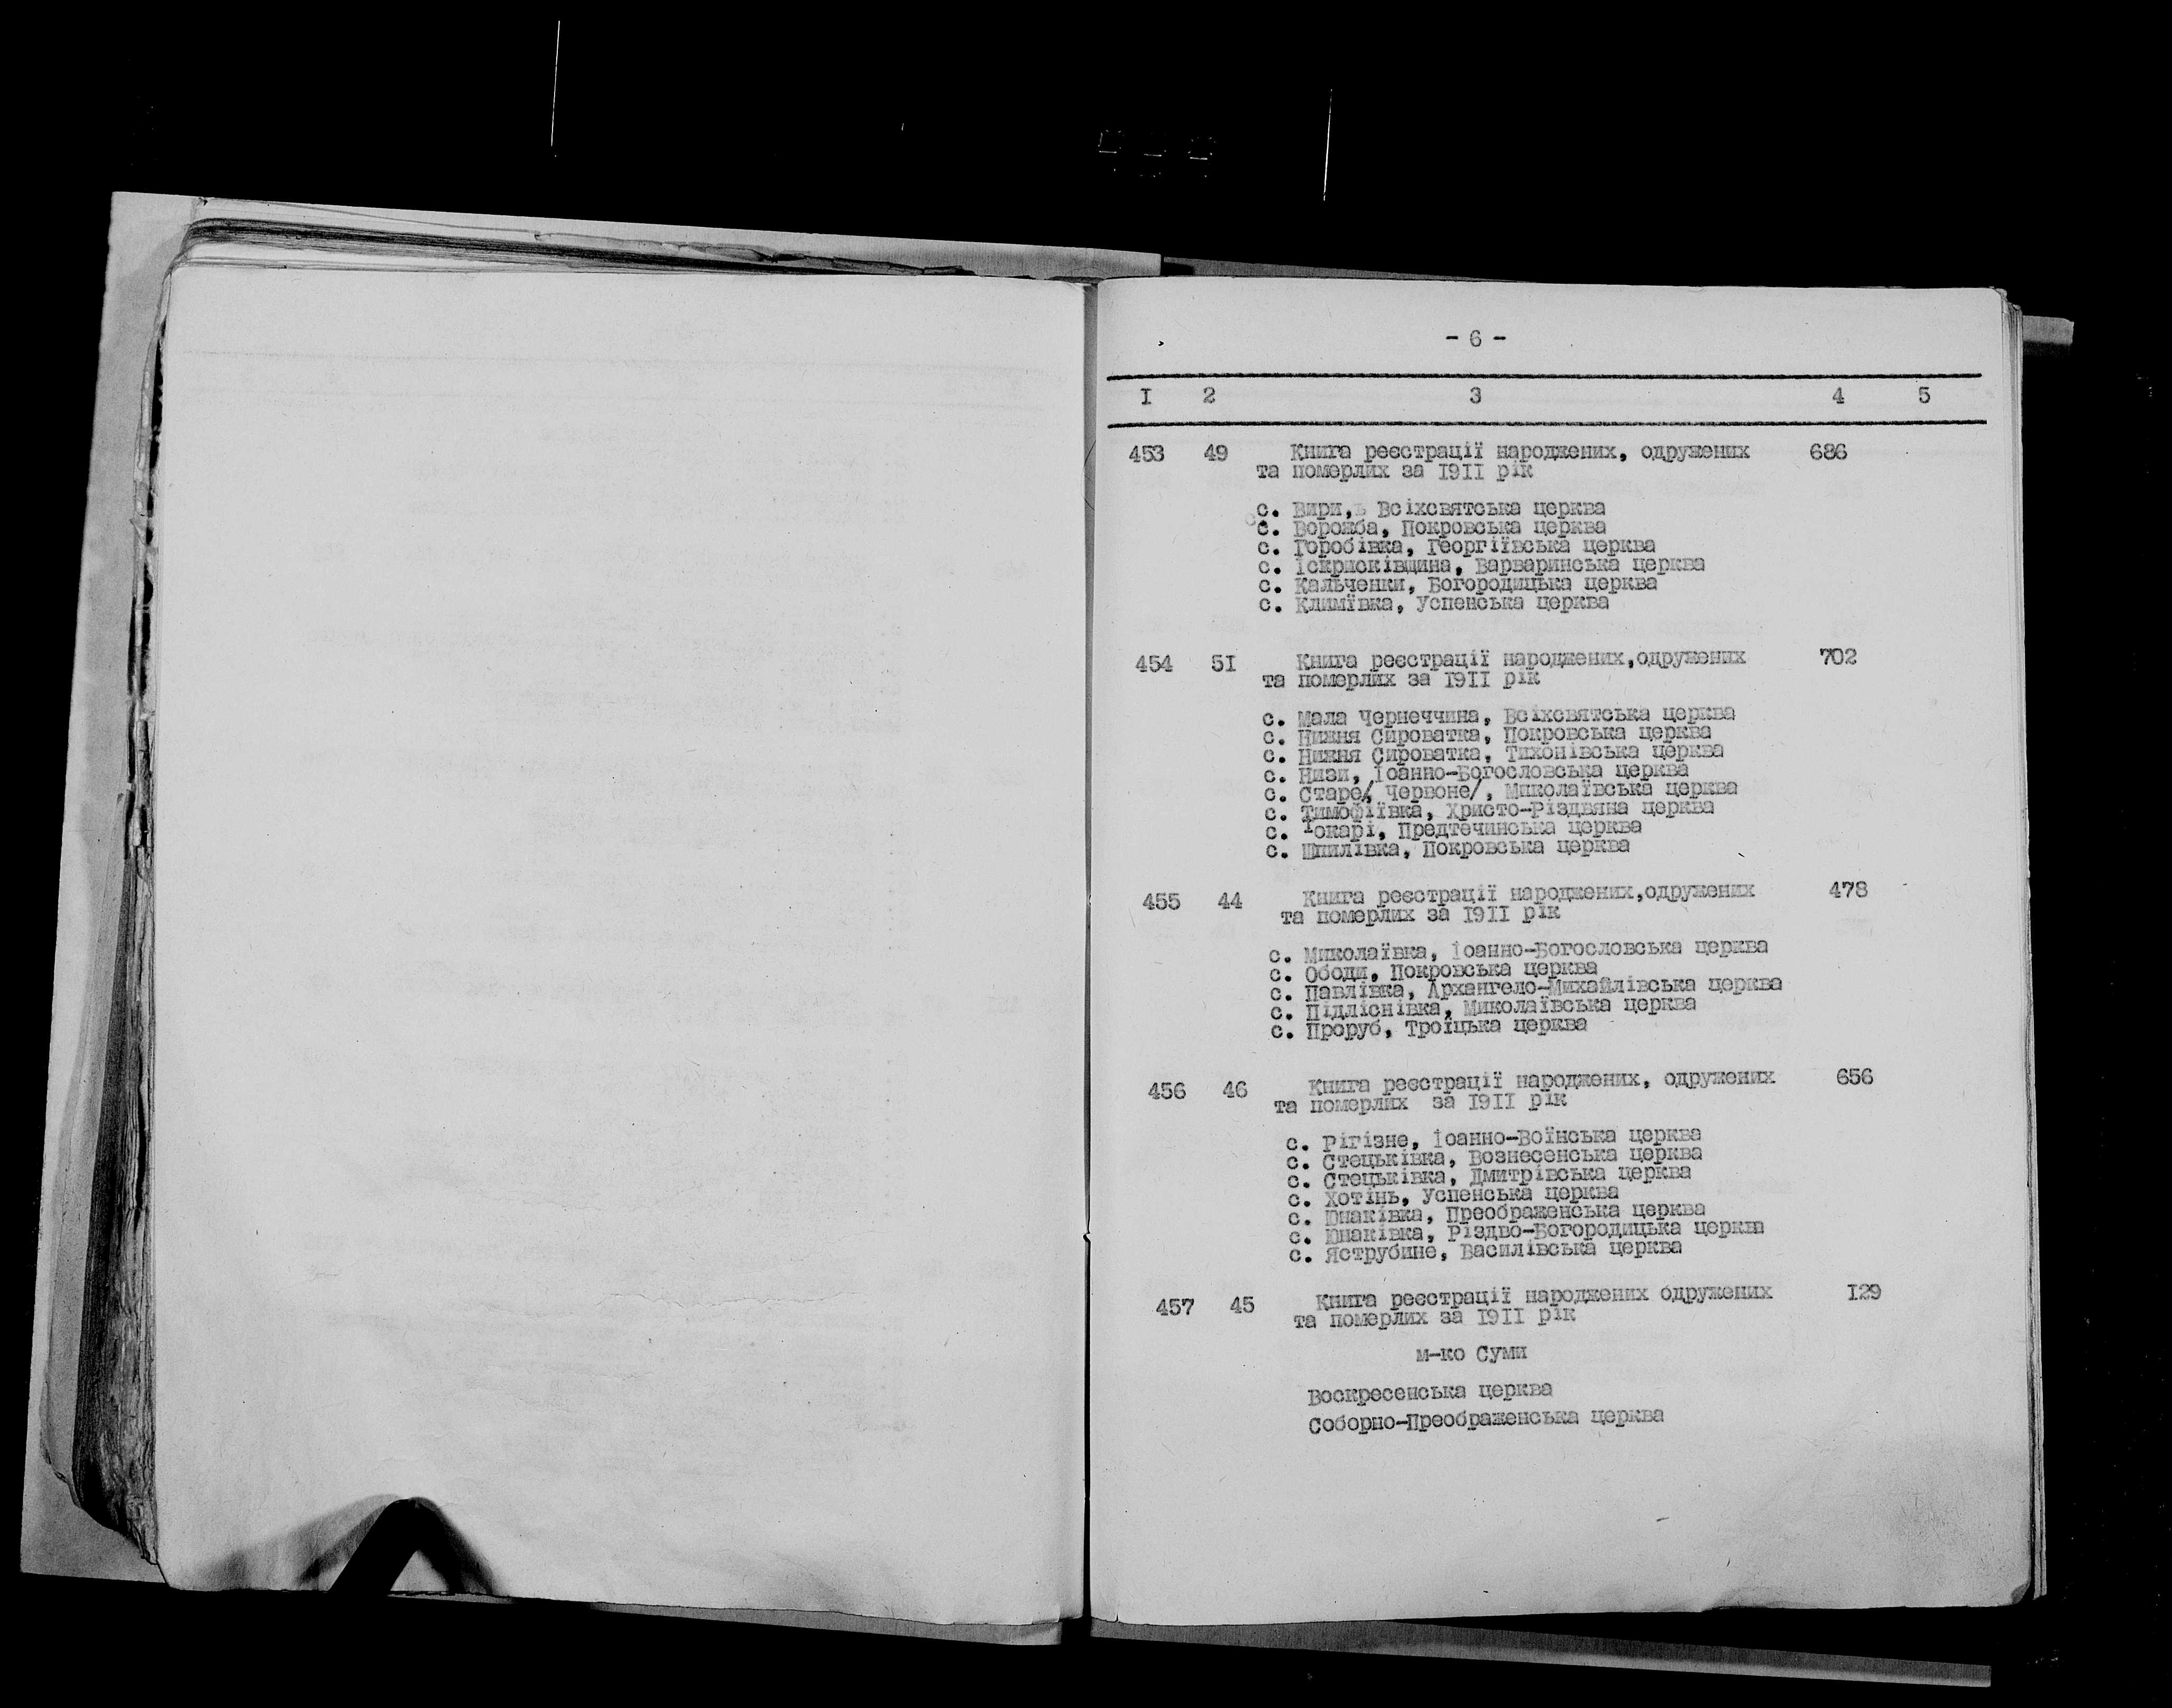 - 6 -
I 2 3 4 5
453 49 Книга реєстрації народжених, одружених 686
та померлих за I9II рік
с. Вири, Всіхсвятська церква
с. Ворожба, Покровська церква
с. Горобівка, Георгіївська церква
с. Іскрисківщина, Варваринська церква
с. Кальченки, Богородицька церква
с. Климівка, Успенська церква
454 5I Книга реєстрації народжених,одружених 702
та померлих за I9II рік
с. Мала Чернеччина, Всіхсвятська церква
с. Нижня Сироватка, Покровська церква
с. Нижня Сироватка, Тихонівська церква
с. Низи, Іоанно-Богословська церква
с. Старе/ Червоне/, Миколаївська церква
с. Тимофіївка, Христо-Різдвяна церква
с. Токарі, Предтечинська церква
с. Шпилівка, Покровська церква
455 44 Книга реєстрації народжених,одружених 478
та померлих за I9II рік
с. Миколаївка, Іоанно-Богословська церква
с. Ободи, Покровська церква
с. Павлівка, Архангело-Михайлівська церква
с. Підліснівка, Миколаївська церква
с. Проруб, Троїцька церква
456 46 Книга реєстрації народжених, одружених 656
та померлих за I9II рік
с. Рігізне, Іоанно-Воїнська церква
с. Стецьківка, Вознесенська церква
с. Стецьківка, Дмитрівська церква
с. Хотінь, Успенська церква
с. Юнаківка, Преображенська церква
с. Юнаківка, Різдво-Богородицька церква
с. Яструбине, Василівська церква
457 45 Книга реєстрації народжених одружених I29
та померлих за I9II рік
м-ко Суми
Воскресенська церква
Соборно-Преображенська церква